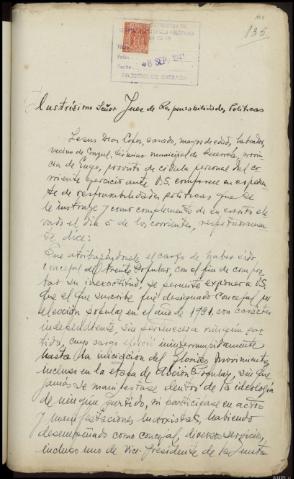 135
8 SEP. 1941
Ilustrísimo Señor Juez de Responsabilidades Políticas
Jesus Dios casado, mayor de edad, labrador,
vecino de término municipal de provin-
cia de Lugo, provisto de cédula personal del co-
rriente ejercicio ante V.S. comparece en expedien-
te de responsabilidades políticas que se
le instruye y como complemento de su escrito ele-
vado el dia 5 de los corrientes, respetuosamen-
te, dice:
Que atribuyéndosele el cargo de haber sido
concejal del Frente Popular, con el fin de compro-
bar su inexactitud, se permite exponer a V.S.
que el que suscribe fué designado Concejal por
elección popular en el año de 1931 con carácter
independiente, sin pertenecer a ningún par-
tido, cuyo cargo ininterrumpidamente
hasta la iniciación del Glorioso Movimiento,
incluso en la etapa de Acción Popular, sin que
jamás se manifestase dentro de la ideología
de ningún partido, ni participase en actos
y manifestaciones habiendo
desempeñado como concejal, diversos servicios,
incluso uno de Vice-Presidente de la Junta